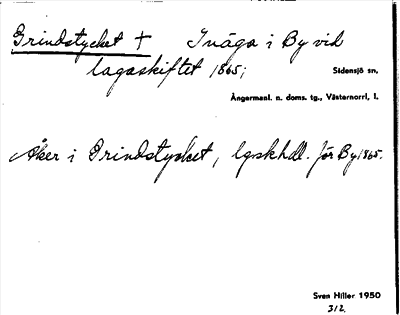 Grindstycket † Inäga i By vid
lagaskiftet 1865;
Sidensjö sn,
Ångermanl. n. doms. tg., Västernorrl, l.
Åker i Grindstycket, lgskhdl. för By 1865.
Sven Hiller 1950
312.